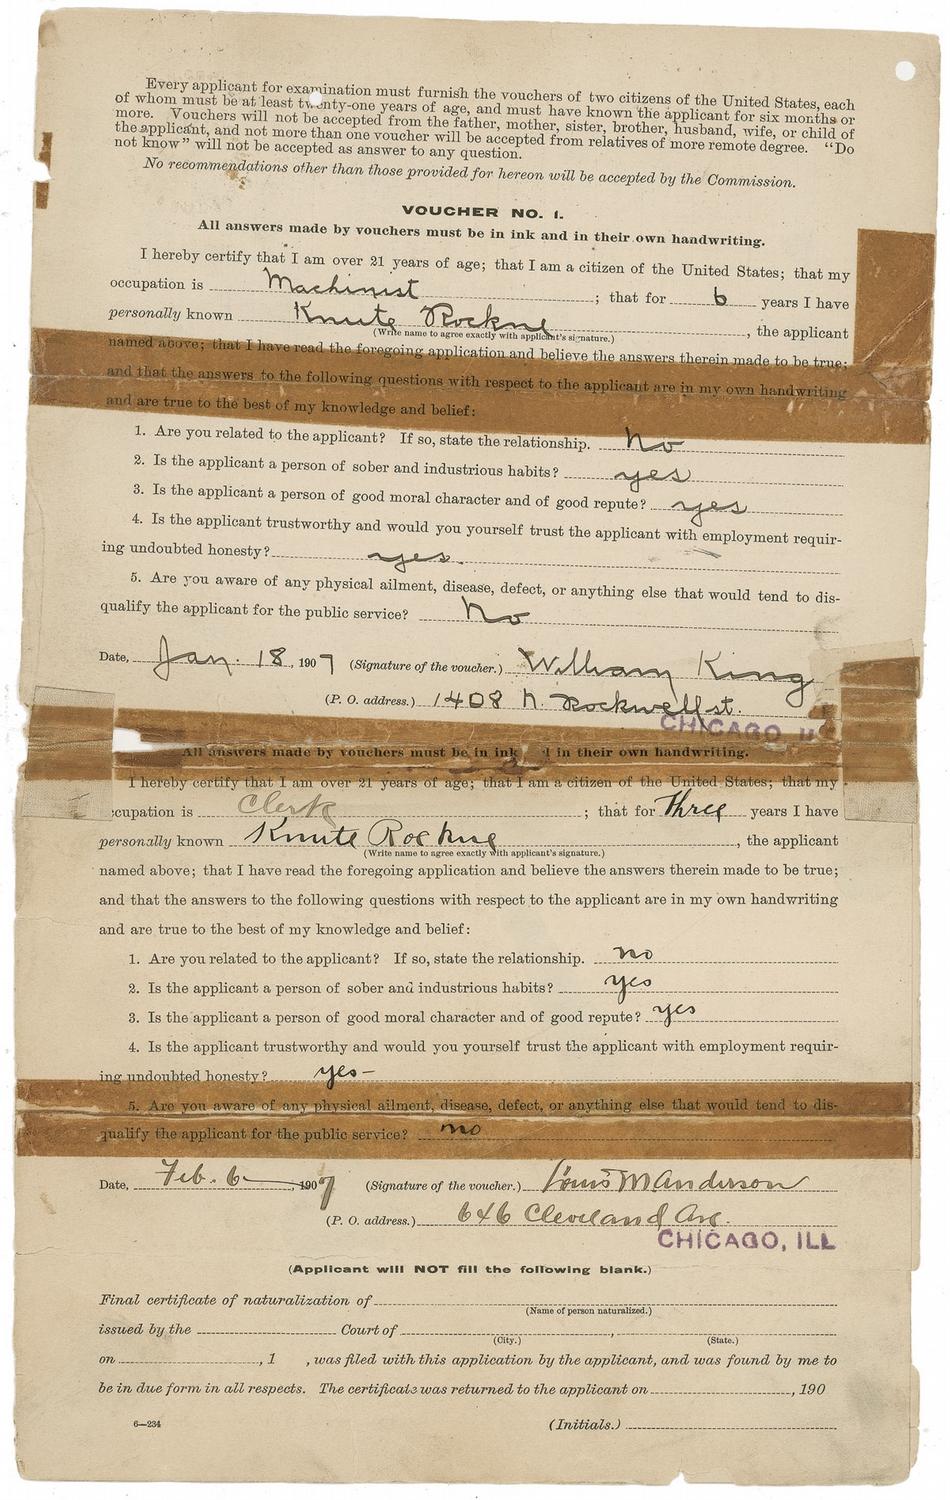 Every applicant for examination must furnish the vouchers of two citizens of the United States, each
of whom must be at least twenty-one years of age, and must have known the applicant for six months or
more. Vouchers will not be accepted from the father, mother, sister, brother, husband, wife, or child of
the applicant, and not more than one voucher will be accepted from relatives of more remote degree. "Do
not know" will not be accepted as answer to any question.
No recommendations other than those provided for hereon will be accepted by the Commission.
VOUCHER NO. 1.
All answers made by vouchers must be in ink and in their own handwriting.
I hereby certify that I am over 21 years of age; that I am a citizen of the United States; that my
occupation is Machinist ; that for 6 years I have
personally known Knute Rockne , the applicant
(Write name to agree exactly with applicant's signature.)
named above; that I have read the foregoing application and believe the answers therein made to be true;
and that the answers to the following questions with respect to the applicant are in my own handwriting
and are true to the best of my knowledge and belief:
1. Are you related to the applicant? If so, state the relationship. No
2. Is the applicant a person of sober and industrious habits? yes
3. Is the applicant a person of good moral character and of good repute? yes
4. Is the applicant trustworthy and would you yourself trust the applicant with employment requir-
ing undoubted honesty? yes.
5. Are you aware of any physical ailment, disease, defect, or anything else that would tend to dis-
qualify the applicant for the public service? No
Date, Jan. 18, 1907 (Signature of the voucher.) William King
(P. O. address.) 1408 N. Rockwell st.
CHICAGO
All answers made by vouchers must be in ink in their own handwriting.
I hereby certify that I am over 21 years of age; that I am a citizen of the United States; that my
occupation is Clerk ; that for Three years I have
personally known Knute Rockne , the applicant
(Write name to agree exactly with applicant's signature.)
named above; that I have read the foregoing application and believe the answers therein made to be true;
and that the answers to the following questions with respect to the applicant are in my own handwriting
and are true to the best of my knowledge and belief:
1. Are you related to the applicant? If so, state the relationship. no
2. Is the applicant a person of sober and industrious habits? yes
3. Is the applicant a person of good moral character and of good repute? yes
4. Is the applicant trustworthy and would you yourself trust the applicant with employment requir-
ing undoubted honesty? yes-
5. Are you aware of any physical ailment, disease, defect, or anything else that would tend to dis-
qualify the applicant for the public service? no
Date, Feb. 6, 1907 (Signature of the voucher.) Louis M Anderson
(P. O. address.) 646 Cleveland Ave.
CHICAGO, ILL
(Applicant will NOT fill the following blank.)
Final certificate of naturalization of
(Name of person naturalized.)
issued by the Court of ,
(City.) (State.)
on , 1 , was filed with this application by the applicant, and was found by me to
be in due form in all respects. The certificate was returned to the applicant on , 190
6—234 (Initials.)